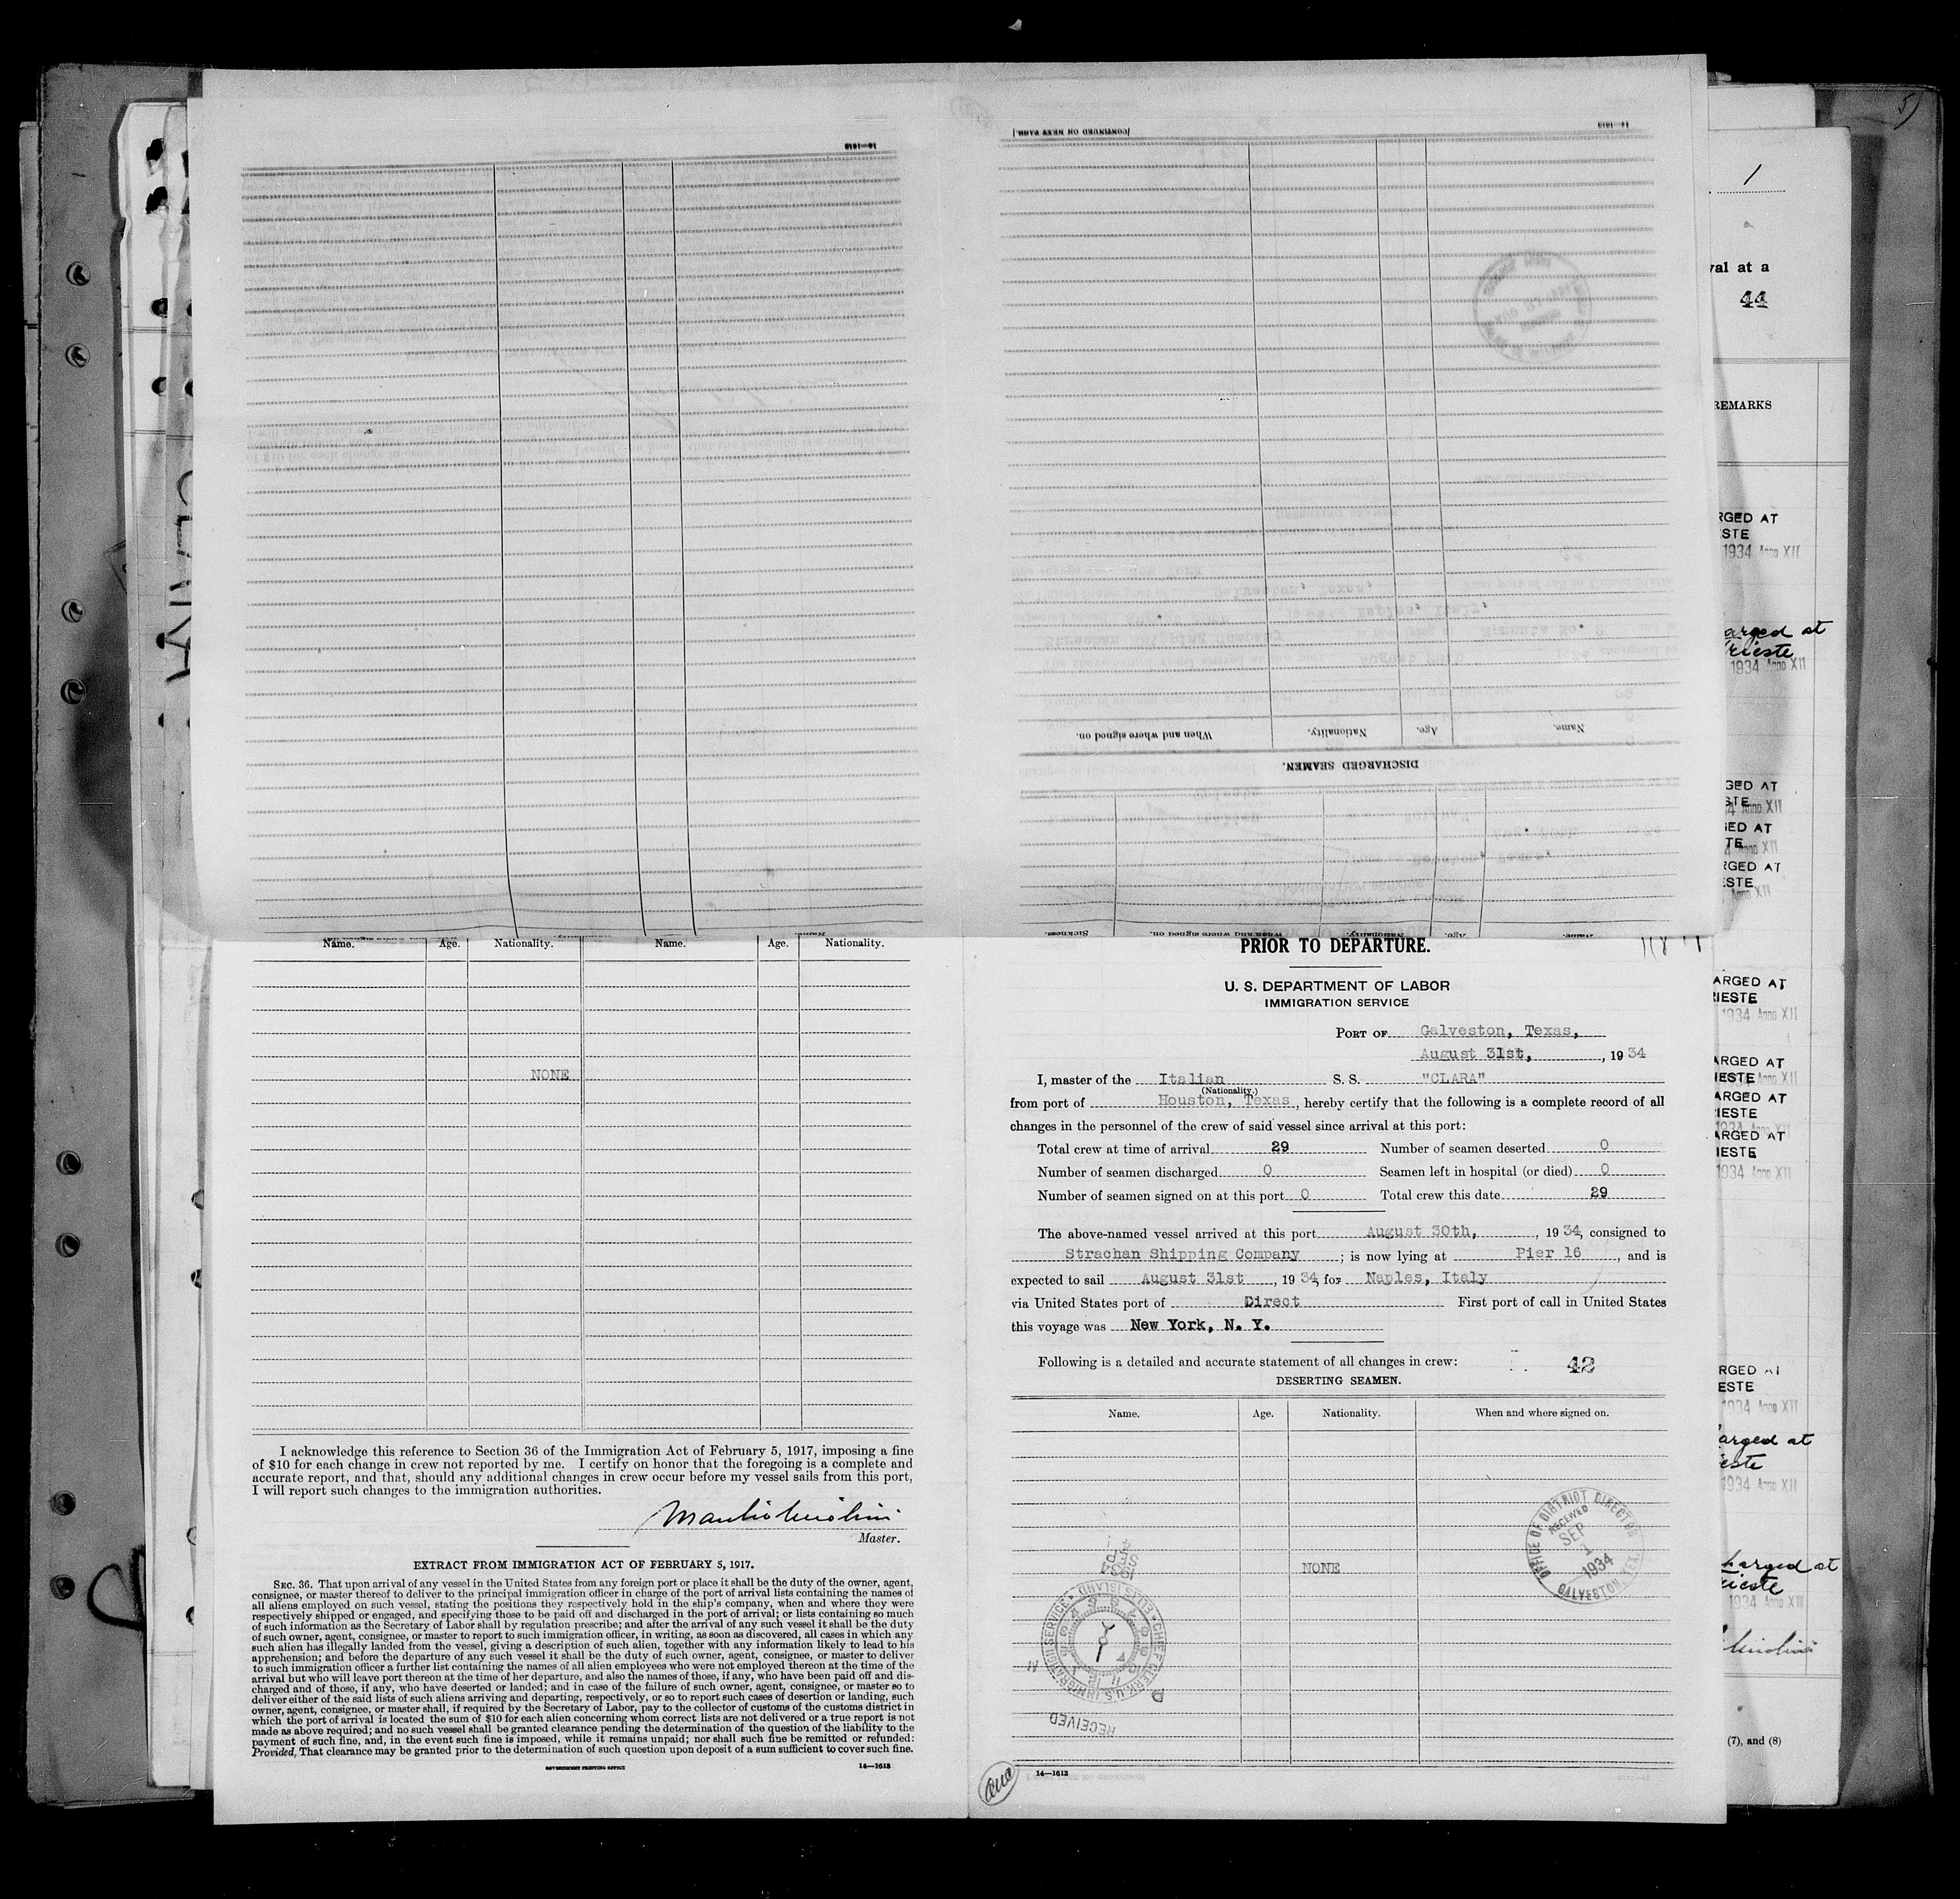 5)
1
val at a
44
REMARKS
RGED AT
STE
1934 Anno XII
arged at
rieste
1934 Anno XII
GED AT
STE
Anno XII
ED AT
TE
Anno XII
RGED AT
STE
Anno XII
ARGED AT
IESTE
1934 Anno XII
ARGED AT
IESTE
1934 Anno XII
ARGED AT
IESTE
ARGED AT
IESTE
1934 Anno XII
RGED AT
ESTE
1934 Anno XII
arged at
este
1934 Anno XII
harged at
rieste
1934 Anno XII
(7), and (8)
14—1613
[CONTINUED ON NEXT PAGE.]
14—1613
Name. Age. Nationality. When and where signed on.
DISCHARGED SEAMEN.
Name. Age. Nationality. When and where signed on. Sickness.
Name. Age. Nationality. Name. Age. Nationality.
NONE
I acknowledge this reference to Section 36 of the Immigration Act of February 5, 1917, imposing a fine
of $10 for each change in crew not reported by me. I certify on honor that the foregoing is a complete and
accurate report, and that, should any additional changes in crew occur before my vessel sails from this port,
I will report such changes to the immigration authorities.
Master.
EXTRACT FROM IMMIGRATION ACT OF FEBRUARY 5, 1917.
SEC. 36. That upon arrival of any vessel in the United States from any foreign port or place it shall be the duty of the owner, agent,
consignee, or master thereof to deliver to the principal immigration officer in charge of the port of arrival lists containing the names of
all aliens employed on such vessel, stating the positions they respectively hold in the ship's company, when and where they were
respectively shipped or engaged, and specifying those to be paid off and discharged in the port of arrival; or lists containing so much
of such information as the Secretary of Labor shall by regulation prescribe; and after the arrival of any such vessel it shall be the duty
of such owner, agent, consignee, or master to report to such immigration officer, in writing, as soon as discovered, all cases in which any
such alien has illegally landed from the vessel, giving a description of such alien, together with any information likely to lead to his
apprehension; and before the departure of any such vessel it shall be the duty of such owner, agent, consignee, or master to deliver
to such immigration officer a further list containing the names of all alien employees who were not employed thereon at the time of the
arrival but who will leave port thereon at the time of her departure, and also the names of those, if any, who have been paid off and dis-
charged and of those, if any, who have deserted or landed; and in case of the failure of such owner, agent, consignee, or master so to
deliver either of the said lists of such aliens arriving and departing, respectively, or so to report such cases of desertion or landing, such
owner, agent, consignee, or master shall, if required by the Secretary of Labor, pay to the collector of customs of the customs district in
which the port of arrival is located the sum of $10 for each alien concerning whom correct lists are not delivered or a true report is not
made as above required; and no such vessel shall be granted clearance pending the determination of the question of the liability to the
payment of such fine, and, in the event such fine is imposed, while it remains unpaid; nor shall such fine be remitted or refunded:
Provided, That clearance may be granted prior to the determination of such question upon deposit of a sum sufficient to cover such fine.
GOVERNMENT PRINTING OFFICE 14—1613
PRIOR TO DEPARTURE.
U. S. DEPARTMENT OF LABOR
IMMIGRATION SERVICE
PORT OF Galveston, Texas,
August 31st, , 1934
I, master of the Italian S. S. "CLARA"
(Nationality.)
from port of Houston, Texas, hereby certify that the following is a complete record of all
changes in the personnel of the crew of said vessel since arrival at this port:
Total crew at time of arrival 29 Number of seamen deserted 0
Number of seamen discharged 0 Seamen left in hospital (or died) 0
Number of seamen signed on at this port 0 Total crew this date 29
The above-named vessel arrived at this port August 30th, , 1934, consigned to
Strachan Shipping Company ; is now lying at Pier 16 , and is
expected to sail August 31st , 1934, for Naples, Italy
via United States port of Direct First port of call in United States
this voyage was New York, N. Y.
Following is a detailed and accurate statement of all changes in crew: 42
DESERTING SEAMEN.
Name. Age. Nationality. When and where signed on.
OFFICE OF DISTRICT DIRECTOR
RECEIVED
SEP 1 1934
GALVESTON, TEX.
NONE
1934
SEP
4
CHIEF CLERK, U.S. IMMIGRATION SERVICE ELLIS ISLAND
RECEIVED
14—1613